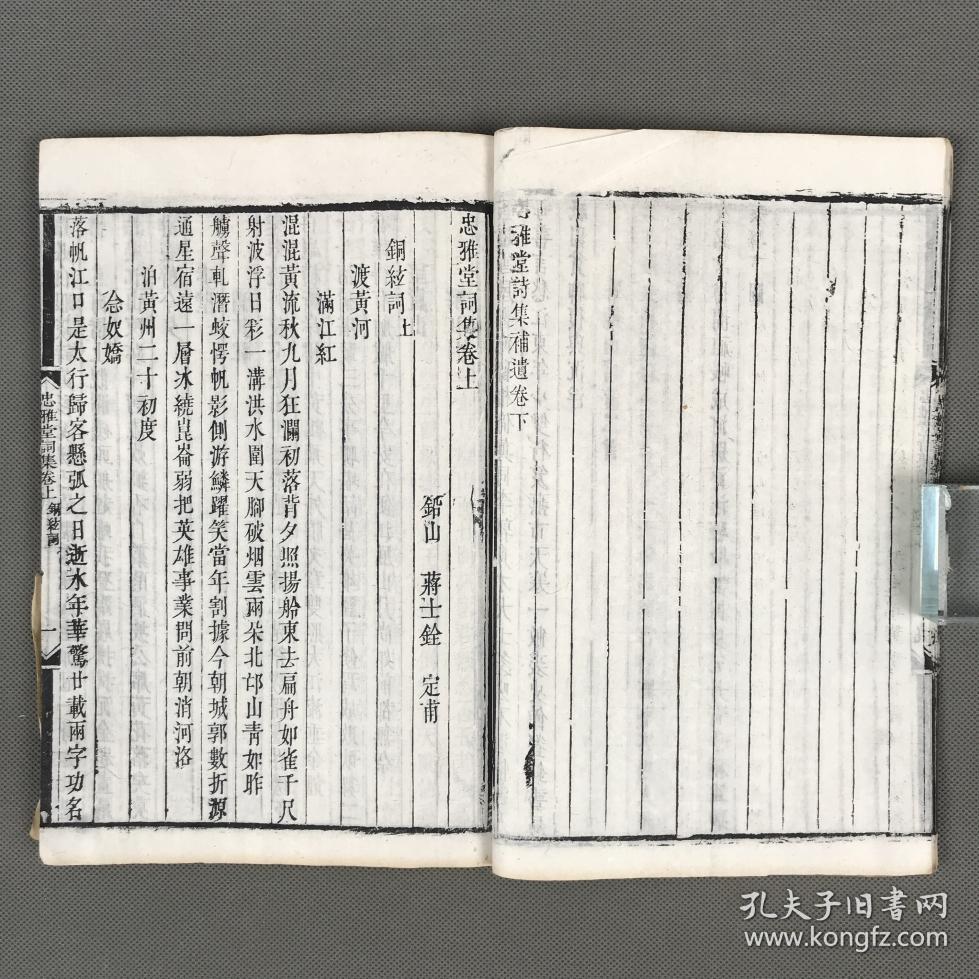 忠雅堂詩集補遺卷下
忠雅堂詞集卷上
鉛山　蔣士銓　定甫
銅絃詞上
渡黃河
滿江紅
混混黃流秋九月狂瀾初落背夕照揚舲東去扁舟如雀千尺
射波浮日彩一溝洪水圍天腳破烟雲兩朵北邙山青如昨
艣聲軋潛蛟愕帆影側游鱗躍笑當年割據今朝城郭數折源
通星宿遠一層冰繞崑崙弱把英雄事業問前朝消河洛
泊黃州二十初度
念奴嬌
落帆江口是太行歸客懸弧之日逝水年華驚廿載兩字功名
忠雅堂詞集卷上 銅絃詞
一
孔夫子旧書网
www.kongfz.com